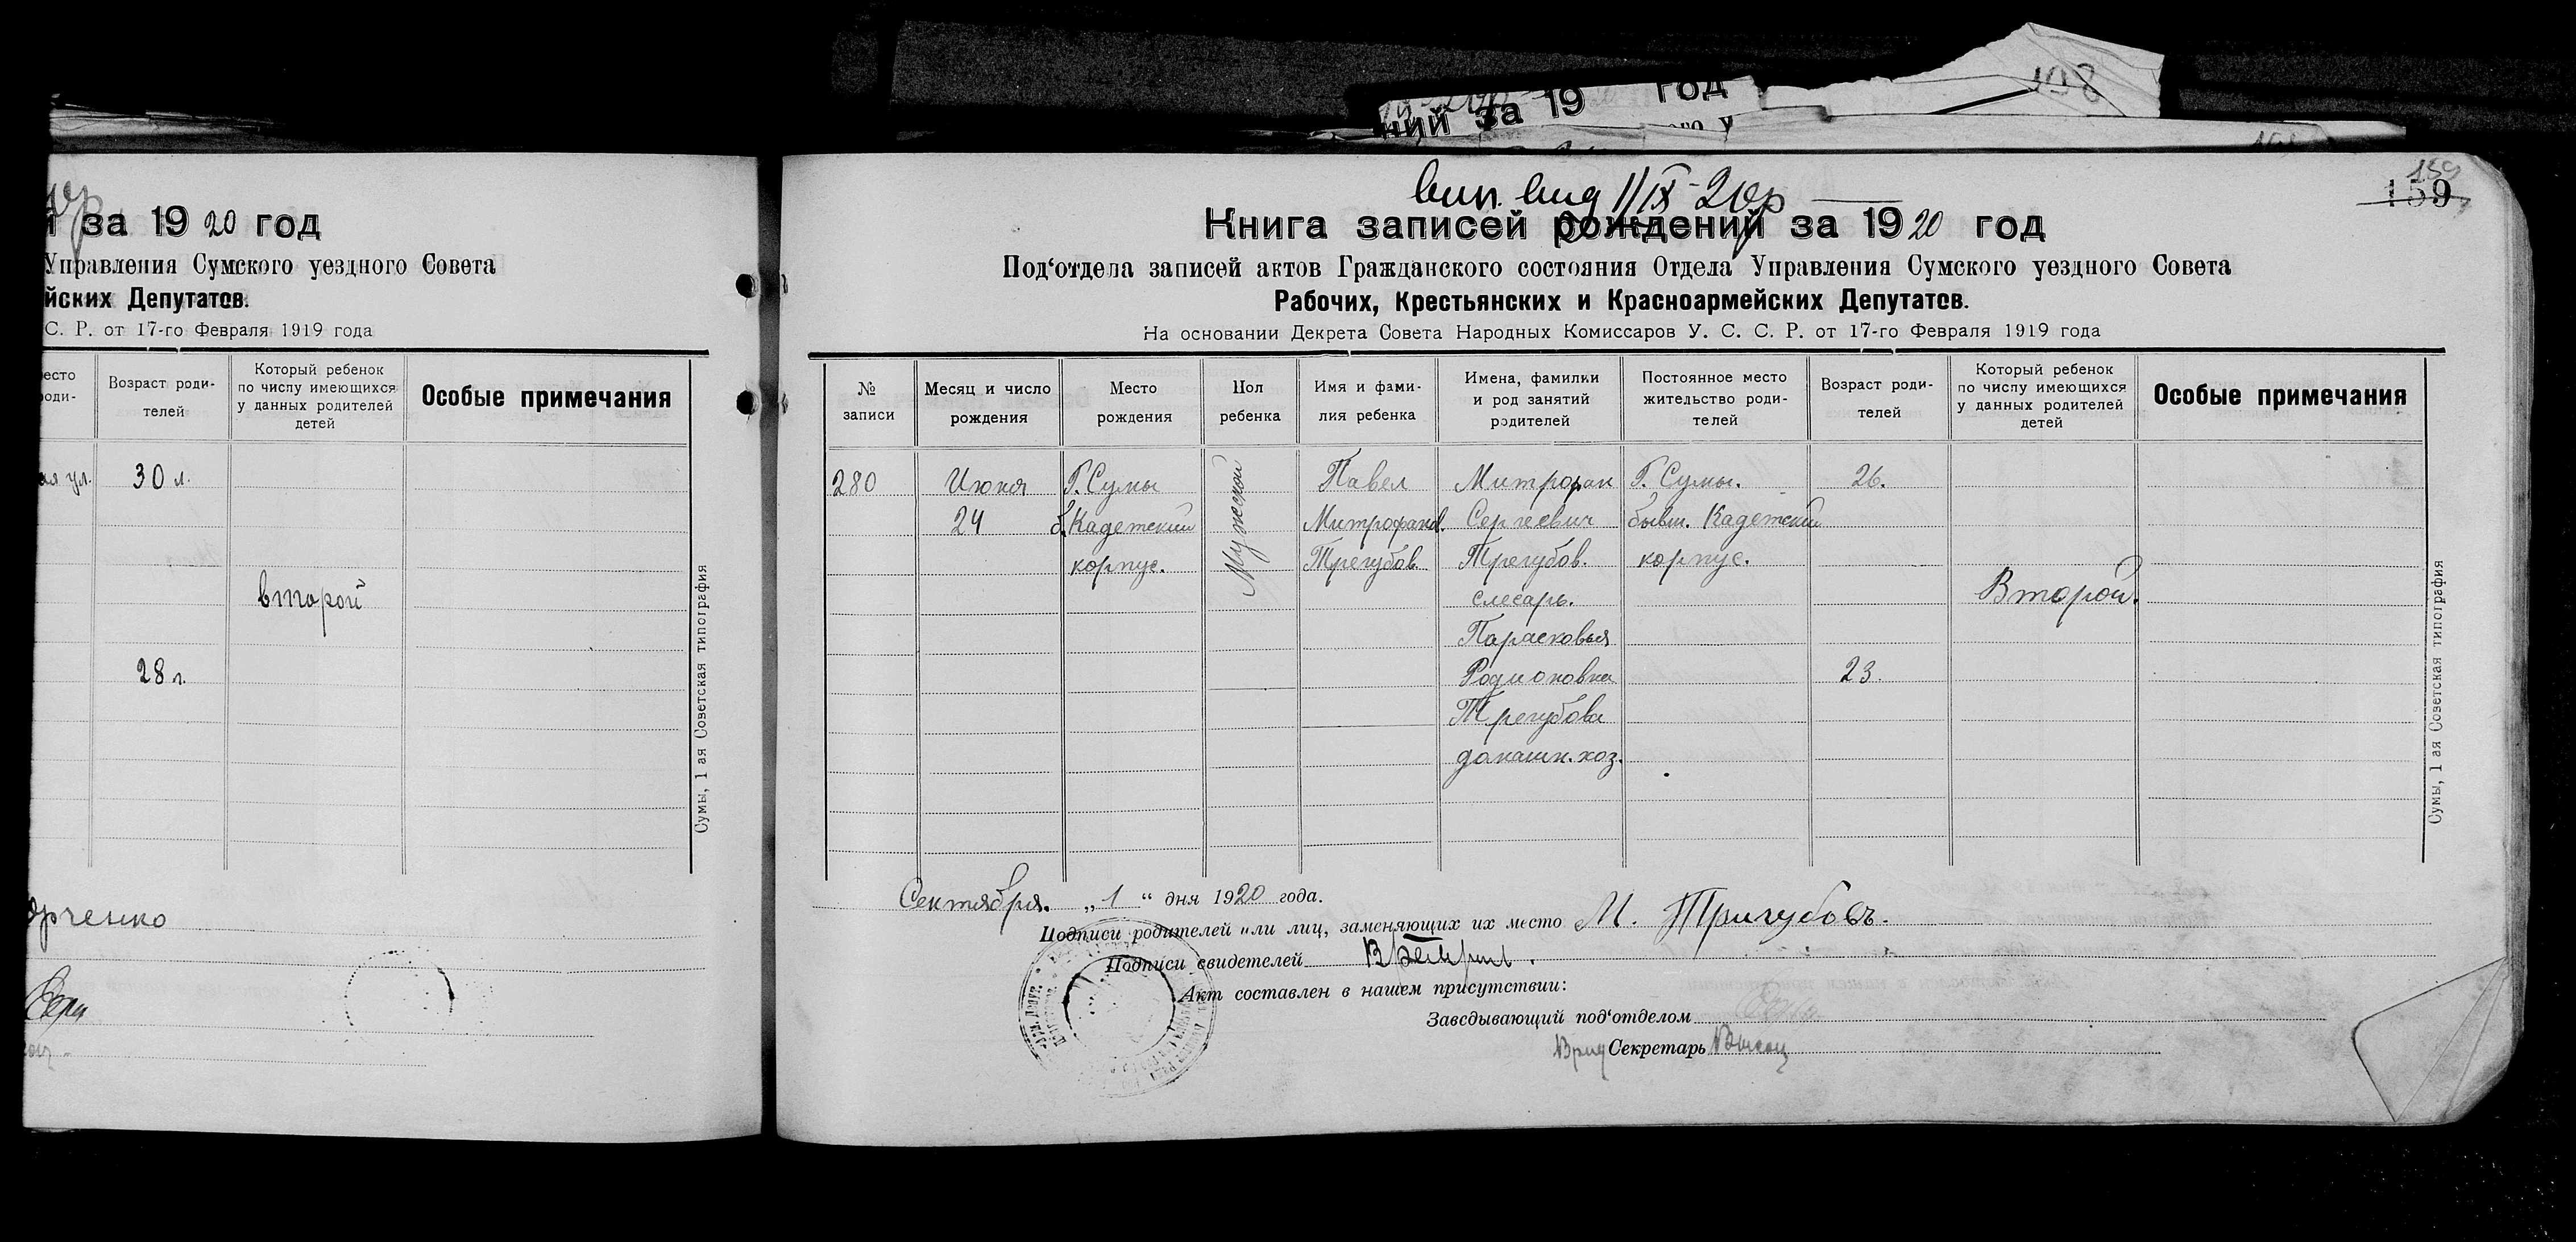 ний за 19 год
198
й за 1920 год
Управления Сумского уездного Совета
йских Депутатов.
С. Р. от 17-го Февраля 1919 года
есто
роди-
Возраст роди-
телей
Который ребенок
по числу имеющихся
у данных родителей
детей
Особые примечания
ая ул.
30 л.
второй
28 г.
Сумы, 1 ая Советская типография
159
159
вып. вид 1/IX-20 р
Книга записей рождений за 1920 год
Под‘отдела записей актов Гражданского состояния Отдела Управления Сумского уездного Совета
Рабочих, Крестьянских и Красноармейских Депутатов.
На основании Декрета Совета Народных Комиссаров У. С. С. Р. от 17-го Февраля 1919 года
№
записи
Месяц и число
рождения
Место
рождения
Пол
ребенка
Имя и фами-
лия ребенка
Имена, фамилии
и род занятий
родителей
Постоянное место
жительство роди-
телей
Возраст роди-
телей
Который ребенок
по числу имеющихся
у данных родителей
детей
Особые примечания
280
Июня
24
Г. Сумы
б. Кадетский
корпус.
Мужской
Павел
Митрофанов.
Трегубов.
Митрофан
Сергеевич
Трегубов.
слесарь.
Парасковья
Родионовна
Трегубова
домашн. хоз.
Г. Сумы.
бывш. Кадетский
корпус.
26.
23.
Второй.
Сумы, 1 ая Советская типография
Сентября. „1“ дня 1920 года.
Подписи родителей или лиц, заменяющих их место М. Тригубовъ.
Подписи свидетелей
Акт составлен в нашем присутствии:
Заведывающий под‘отделом
Врид Секретарь